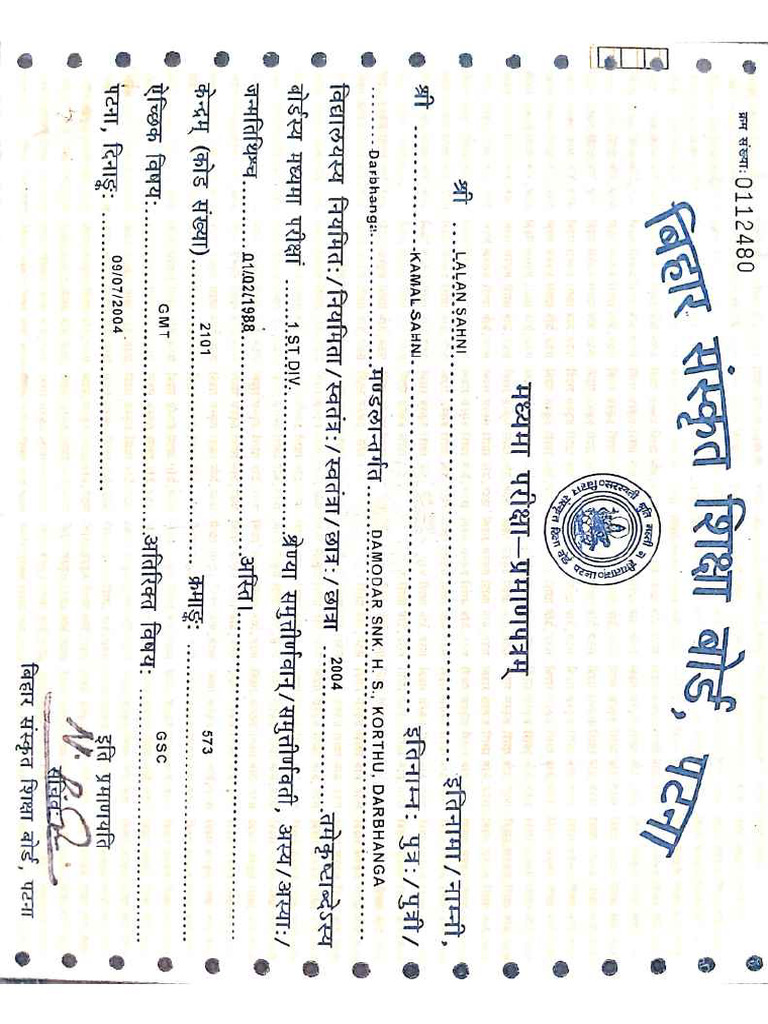 क्रम संख्या: 0112480
बिहार संस्कृत शिक्षा बोर्ड, पटना
मध्यमा परीक्षा–प्रमाणपत्रम्
श्री LALAN SAHNI इतिनामा/नाम्नी,
श्री KAMAL SAHNI इतिनाम्नः पुत्रः/पुत्री/
Darbhanga मण्डलान्तर्गत DAMODAR SNK. H. S. KORTHU, DARBHANGA
विद्यालयस्य नियमितः/नियमिता/स्वतंत्रः/स्वतंत्रा/छात्रः/छात्रा 2004 तमेकृष्टाब्देऽस्य
बोर्डस्य मध्यमा परीक्षां 1.ST.DIV. श्रेण्या समुत्तीर्णवान्/समुत्तीर्णवती, अस्य/अस्याः/
जन्मतिथिश्च 01/02/1988 अस्ति।
केन्द्रम् (कोड संख्या) 2101 क्रमाङ्कः 573
ऐच्छिक विषयः GMT अतिरिक्त विषयः GSC
पटना, दिनाङ्कः 09/07/2004
इति प्रमाणयति
सचिवः
बिहार संस्कृत शिक्षा बोर्ड, पटना